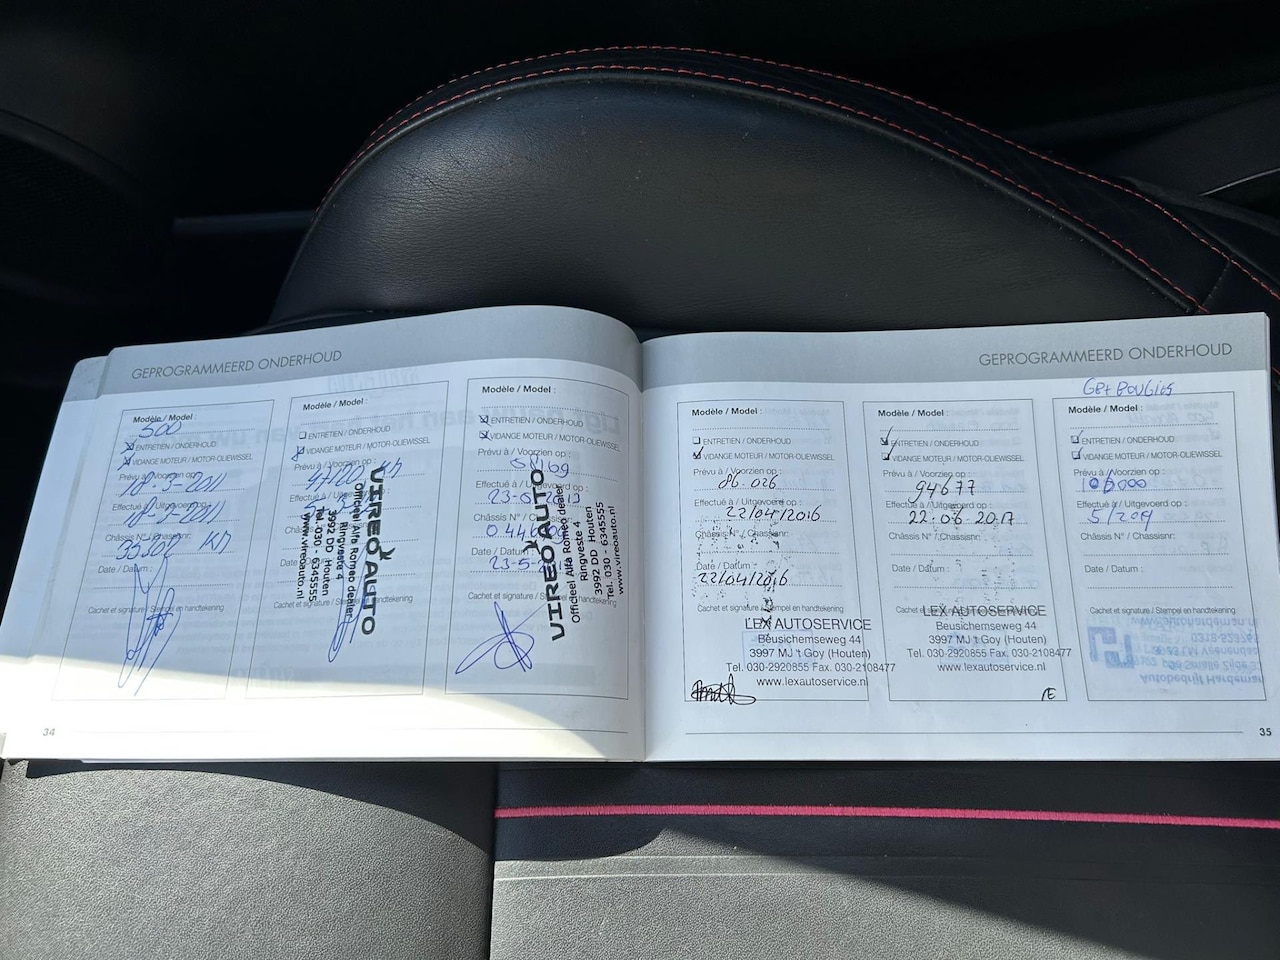 GEPROGRAMMEERD ONDERHOUD
Modèle / Model :
500
ENTRETIEN / ONDERHOUD
VIDANGE MOTEUR / MOTOR-OLIEWISSEL
Prévu à / Voorzien op :
18-3-2011
Effectué à / Uitgevoerd op :
18-3-2011
Châssis N° / Chassisnr:
Date / Datum :
Cachet et signature / Stempel en handtekening
Modèle / Model :
ENTRETIEN / ONDERHOUD
VIDANGE MOTEUR / MOTOR-OLIEWISSEL
Prévu à / Voorzien op :
Effectué à /
Châssis N°
VIREO AUTO
Officieel Alfa Romeo dealer
Ringveste 4
3992 DD Houten
Tel. 030 - 6345555
www.vireoauto.nl
Modèle / Model :
ENTRETIEN / ONDERHOUD
VIDANGE MOTEUR / MOTOR-OLIEWISSEL
Prévu à / Voorzien op :
Effectué à / Uitgevoerd op :
Châssis N° / Chassisnr:
Date / Datum
23-5-
Cachet et signature / Stempel en handtekening
VIREO AUTO
Officieel Alfa Romeo dealer
Ringveste 4
3992 DD Houten
Tel. 030 - 6345555
www.vireoauto.nl
34
GEPROGRAMMEERD ONDERHOUD
Modèle / Model :
ENTRETIEN / ONDERHOUD
VIDANGE MOTEUR / MOTOR-OLIEWISSEL
Prévu à / Voorzien op :
86.026
Effectué à / Uitgevoerd op :
22/04/2016
Châssis N° / Chassisnr:
Date / Datum :
22/04/2016
Cachet et signature / Stempel en handtekening
LEX AUTOSERVICE
Beusichemseweg 44
3997 MJ 't Goy (Houten)
Tel. 030-2920855 Fax. 030-2108477
www.lexautoservice.nl
Modèle / Model :
ENTRETIEN / ONDERHOUD
VIDANGE MOTEUR / MOTOR-OLIEWISSEL
Prévu à / Voorzien op :
94677
Effectué à / Uitgevoerd op :
22-06-2017
Châssis N° / Chassisnr:
Date / Datum :
Cachet et signature / Stempel en handtekening
LEX AUTOSERVICE
Beusichemseweg 44
3997 MJ 't Goy (Houten)
Tel. 030-2920855 Fax. 030-2108477
www.lexautoservice.nl
GB+ BOUGIES
Modèle / Model :
ENTRETIEN / ONDERHOUD
VIDANGE MOTEUR / MOTOR-OLIEWISSEL
Prévu à / Voorzien op :
Effectué à / Uitgevoerd op :
Châssis N° / Chassisnr:
Date / Datum :
Cachet et signature / Stempel en handtekening
Autobedrijf Hardeman
35